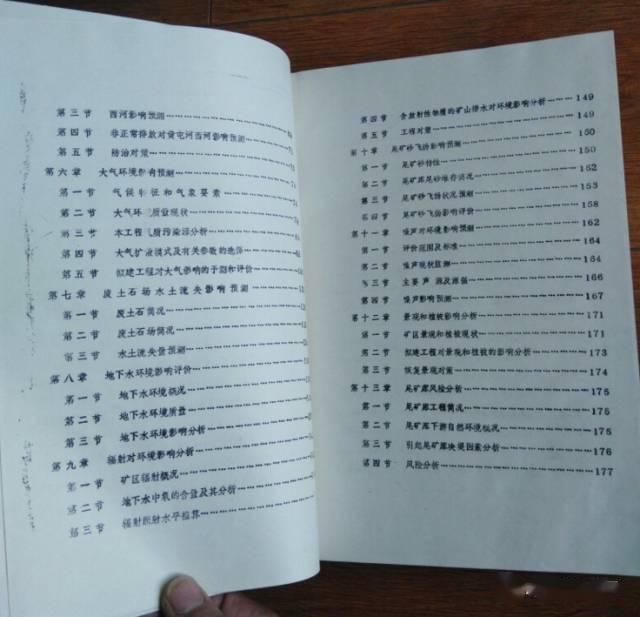 第三节 西河影响预测
第四节 非正常排放对黄屯河西河影响预测
第五节 防治对策
第六章 大气环境影响预测
第一节 气候特征和气象要素
第二节 大气环境质量现状
第三节 本工程气质污染源分析
第四节 大气扩散模式及有关参数的选择
第五节 拟建工程对大气影响的予测和评价
第七章 废土石场水土流失影响预测
第一节 废土石简况
第二节 废土石场简况
第三节 水土流失量预测
第八章 地下水环境影响评价
第一节 地下水环境概况
第二节 地下水环境质量
第三节 地下水环境影响分析
第九章 辐射对环境影响分析
第一节 矿区辐射概况
第二节 地下水中氡的含量及其分析
第三节 辐射照射水平估算
第四节 含放射性物质的矿山排水对环境影响分析 149
第五节 工程对策 150
第十章 尾矿砂飞扬影响预测 150
第一节 尾矿砂特性 150
第二节 尾矿库尾砂堆存情况 152
第三节 尾矿砂飞扬状况预测 153
第四节 尾矿砂飞扬影响评价 158
第十一章 噪声对环境影响预测 162
第一节 评价范围及标准 164
第二节 噪声现状监测 164
第三节 主要声源及源强 166
第四节 噪声影响预测 167
第十二章 景观和植被影响分析 171
第一节 矿区景观和植被现状 171
第二节 拟建工程对景观和植被的影响分析 173
第三节 恢复景观对策 174
第十三章 尾矿库风险分析 175
第一节 尾矿库工程简况 175
第二节 尾矿库下游自然环境概况 175
第三节 引起尾矿库决堤因素分析 176
第四节 风险分析 177